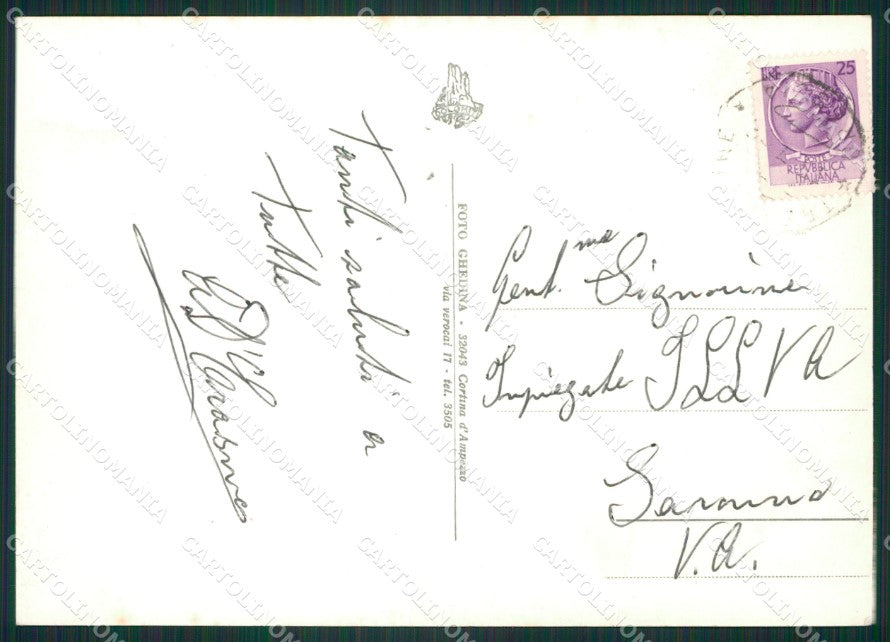 Tanti saluti a
Tutte
FOTO GHEDINA - 32043 Cortina d'Ampezzo
via verocai 17 - tel. 3505
LIRE 25
POSTE
REPVBBLICA
ITALIANA
Gent.me Signorine
Impiegate ILLVA
Saronno
V.A.
CARTOLINOMANIA